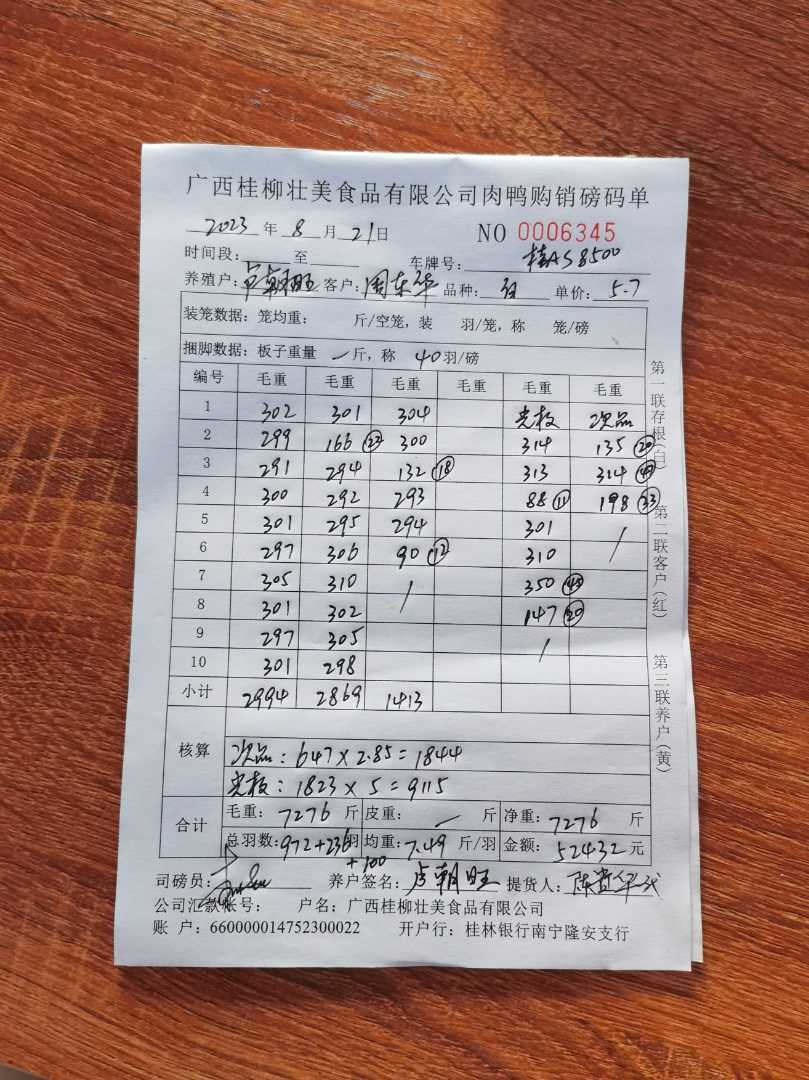 广西桂柳壮美食品有限公司肉鸭购销磅码单
2023 年 8 月 21 日 NO 0006345
时间段: 至 车牌号: 桂AS8500
养殖户: 卢朝旺 客户: 周东华 品种: 单价: 5.7
装笼数据: 笼均重: 斤/空笼, 装 羽/笼, 称 笼/磅
捆脚数据: 板子重量 — 斤, 称 40 羽/磅
编号 毛重 毛重 毛重 毛重 毛重 毛重
1 302 301 304 光板 次品
2 299 166 22 300 314 135 20
3 291 294 132 18 313 314
4 300 292 293 88 11 198 33
5 301 295 294 301 /
6 297 306 90 12 310
7 305 310 / 350
8 301 302 147 20
9 297 305 /
10 301 298
小计 2994 2869 1413
核算
次品: 647 × 2.85 = 1844
光板: 1823 × 5 = 9115
合计
毛重: 7276 斤 皮重: — 斤 净重: 7276 斤
总羽数: 972+236 羽 均重: 7.49 斤/羽 金额: 52432 元
+100
司磅员: 养户签名: 卢朝旺 提货人:
公司汇款帐号: 户名: 广西桂柳壮美食品有限公司
账 户: 660000014752300022 开户行: 桂林银行南宁隆安支行
第一联存根(白)
第二联客户(红)
第三联养户(黄)